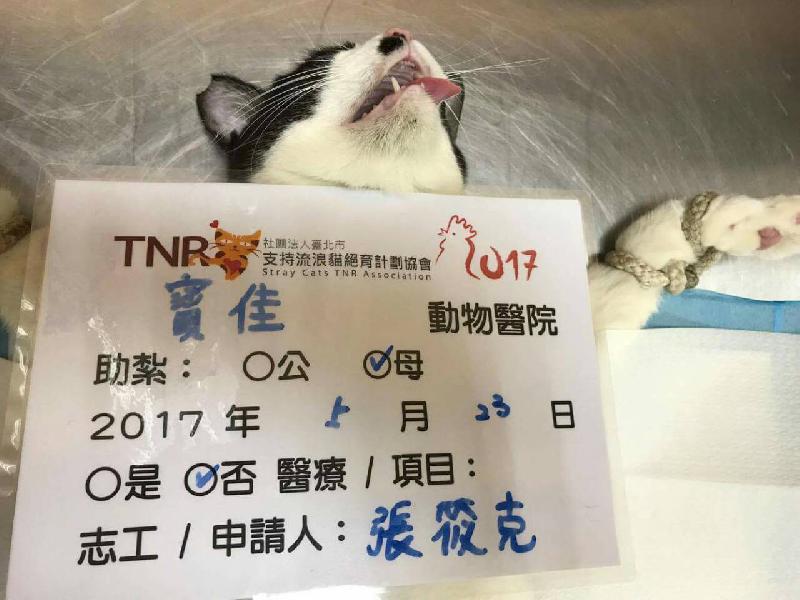 TNR 社團法人臺北市
支持流浪貓絕育計劃協會
Stray Cats TNR Association
2017
寶佳 動物醫院
助紮： ○公 ✓母
2017 年 5 月 23 日
○是 ✓否 醫療 / 項目：
志工 / 申請人： 張筱克